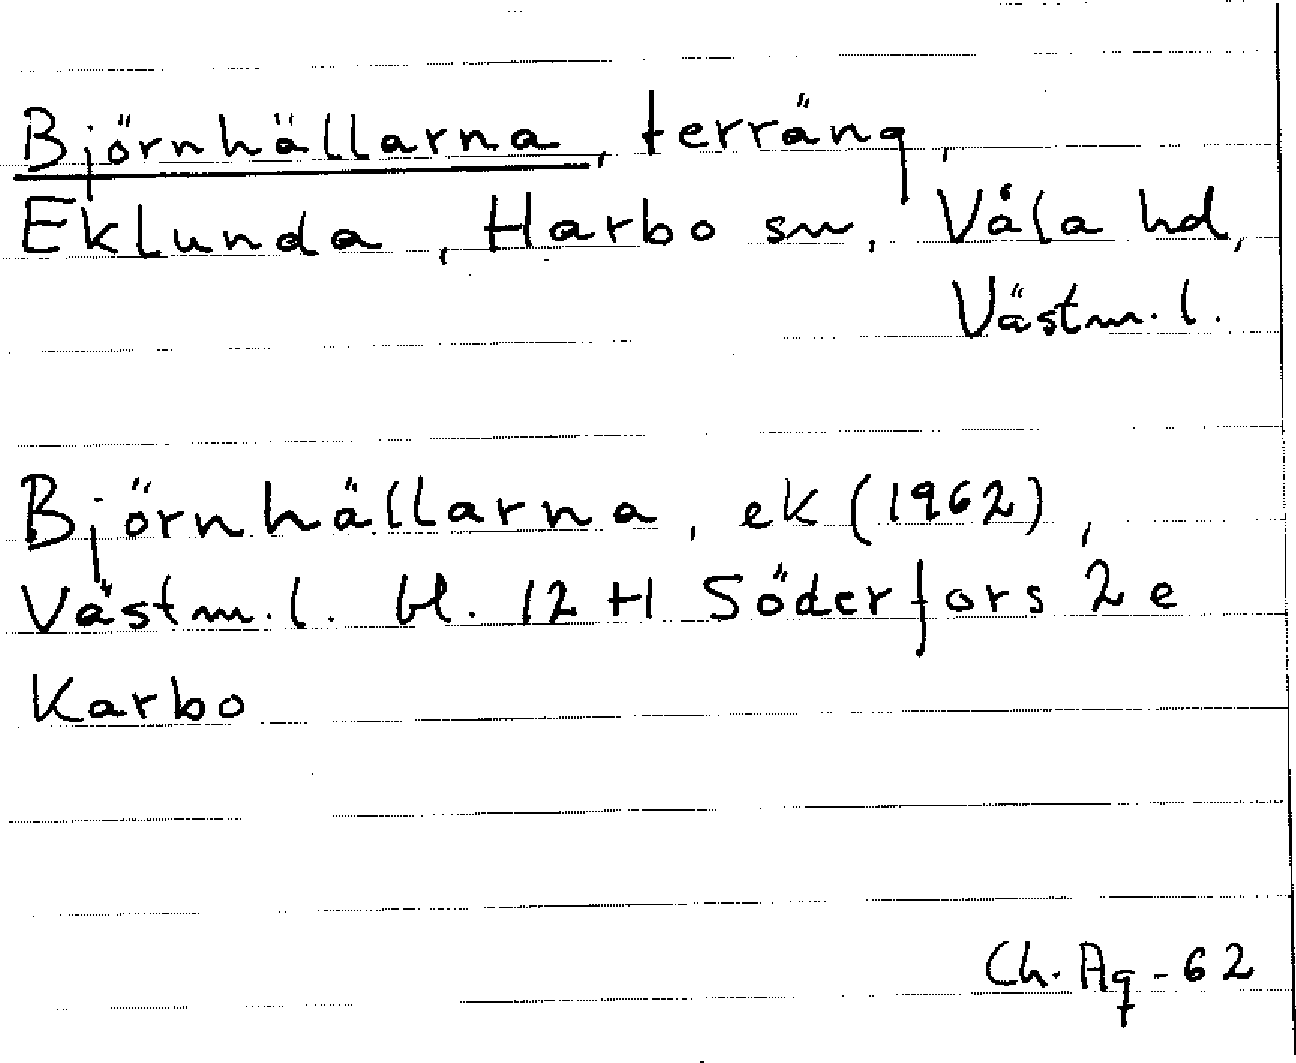 Björnhällarna, terräng,
Eklunda, Harbo sn, Våla hd,
Västm. l.
Björnhällarna, ek (1962),
Västm. l. bl. 12 H Söderfors 2 e
Karbo
Ch. Ag -62